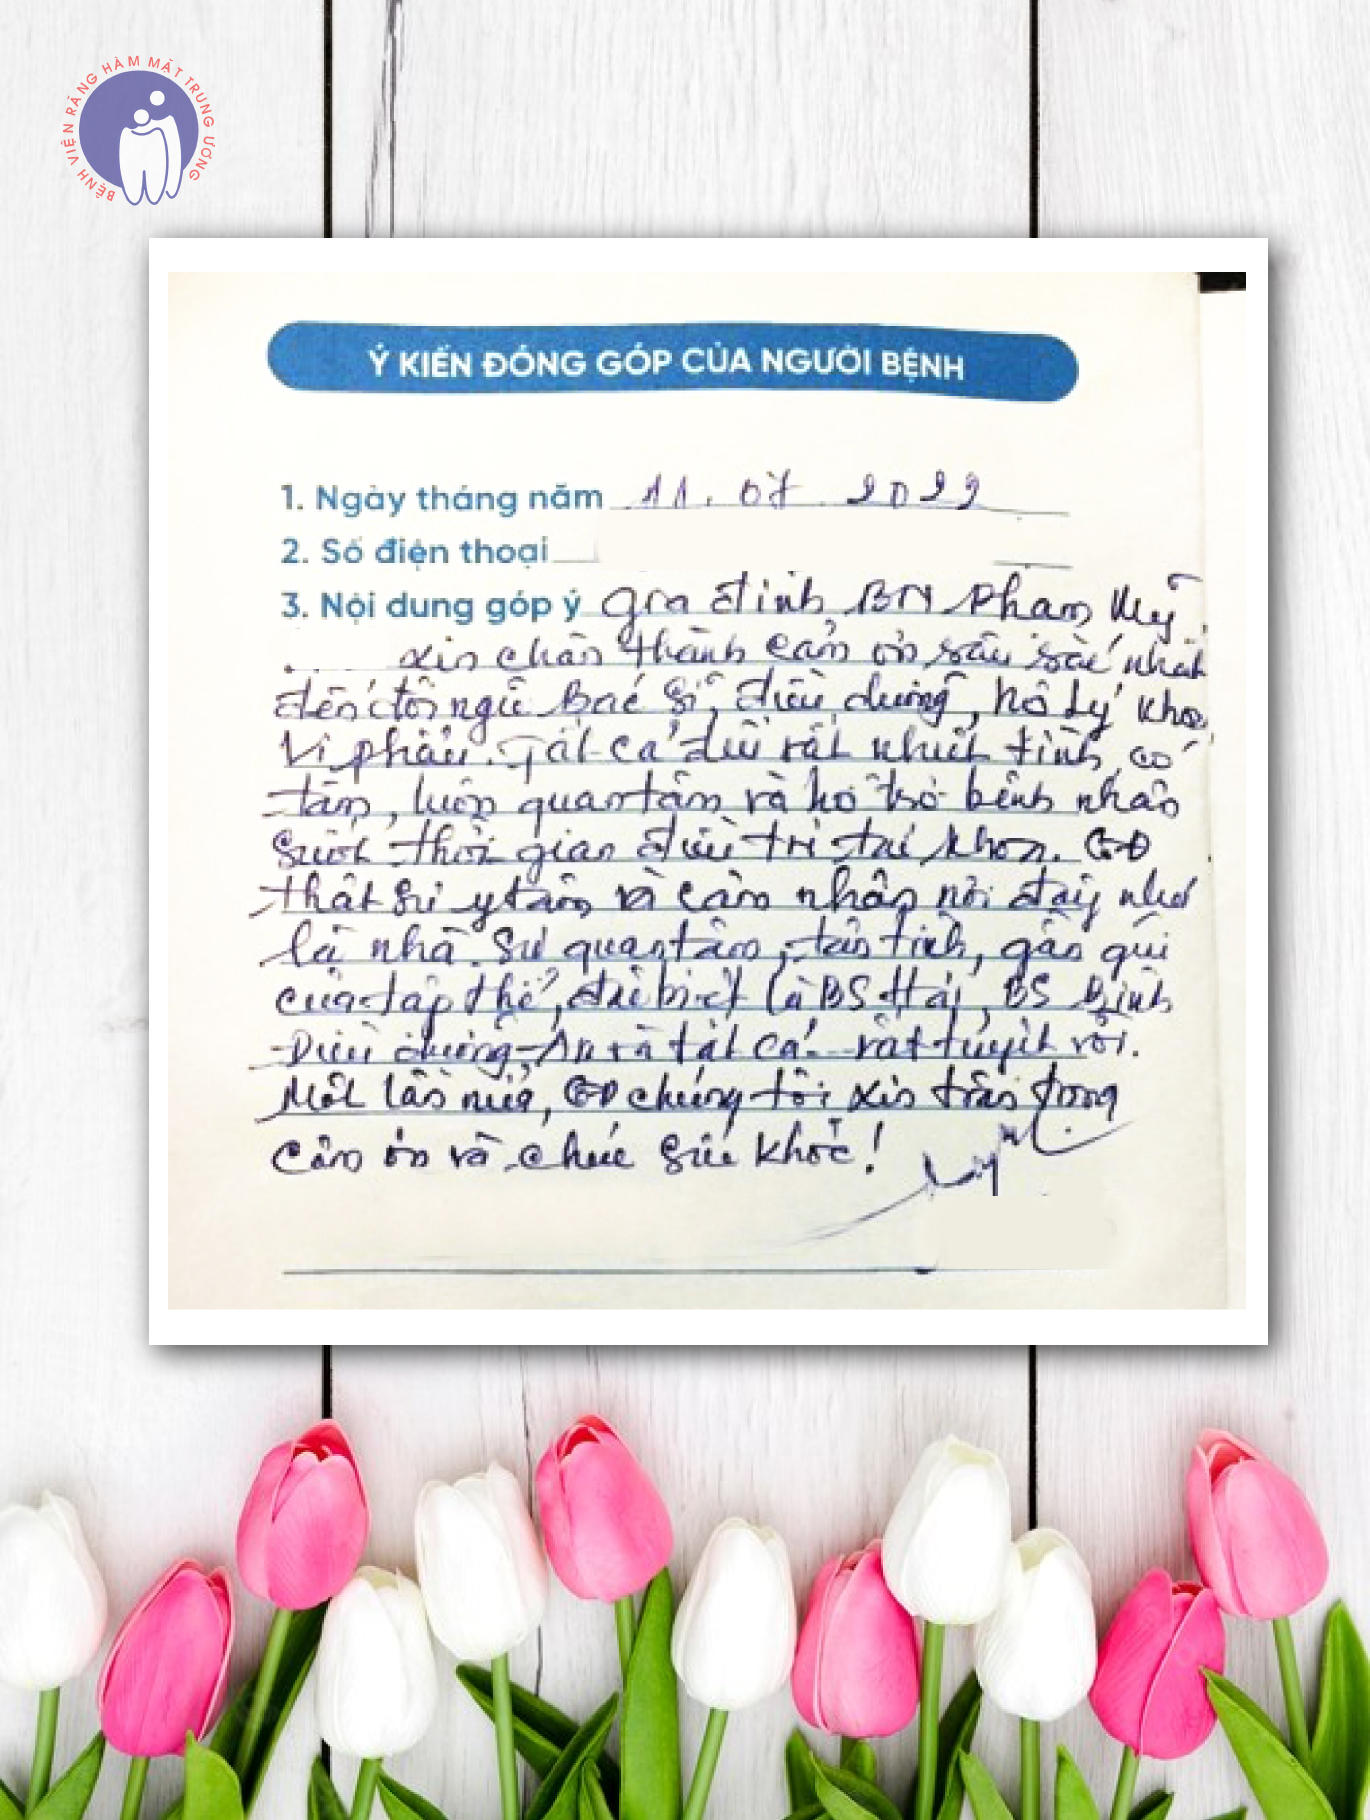 BỆNH VIỆN RĂNG HÀM MẶT TRUNG ƯƠNG
Ý KIẾN ĐÓNG GÓP CỦA NGƯỜI BỆNH
1. Ngày tháng năm 11.07.2022
2. Số điện thoại
3. Nội dung góp ý Gia đình BN Phạm Mỹ
xin chân thành cảm ơn sâu sắc nhất
đến đội ngũ Bác sĩ, điều dưỡng, hộ lý khoa
Vi phẫu. Tất cả đều rất nhiệt tình, có
tâm, luôn quan tâm và hỗ trợ bệnh nhân
suốt thời gian điều trị tại khoa. GĐ
thật sự y tâm và cảm nhận nơi đây như
là nhà. Sự quan tâm, tận tình, gần gũi
của tập thể, đặc biệt là BS Hải, BS Bình
Điều dưỡng An và tất cả rất tuyệt vời.
Một lần nữa, GĐ chúng tôi xin trân trọng
cảm ơn và chúc sức khỏe!